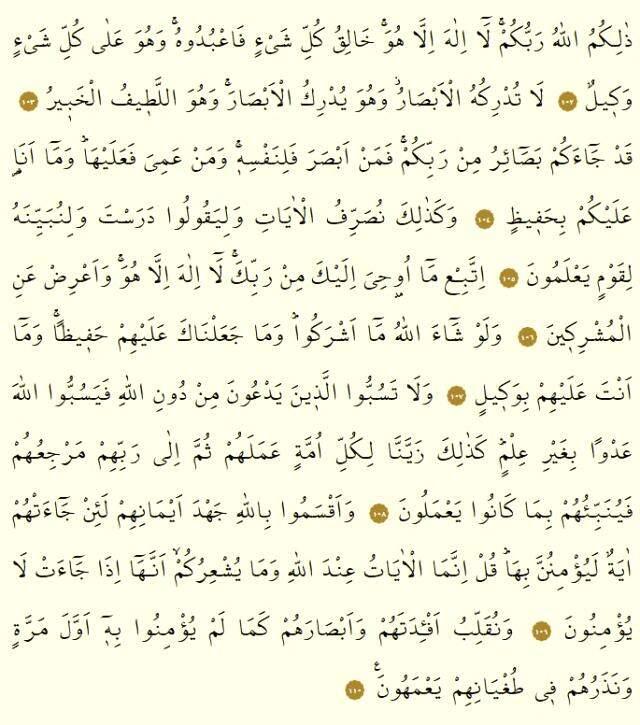 ذٰلِكُمُ اللّٰهُ رَبُّكُمْۚ لَٓا اِلٰهَ اِلَّا هُوَۚ خَالِقُ كُلِّ شَيْءٍ فَاعْبُدُوهُۚ وَهُوَ عَلٰى كُلِّ شَيْءٍ
وَك۪يلٌ ﴿١٠٢﴾ لَا تُدْرِكُهُ الْاَبْصَارُۘ وَهُوَ يُدْرِكُ الْاَبْصَارَۚ وَهُوَ اللَّط۪يفُ الْخَب۪يرُ ﴿١٠٣﴾
قَدْ جَٓاءَكُمْ بَصَٓائِرُ مِنْ رَبِّكُمْۚ فَمَنْ اَبْصَرَ فَلِنَفْسِه۪ۚ وَمَنْ عَمِيَ فَعَلَيْهَاۜ وَمَٓا اَنَا۬
عَلَيْكُمْ بِحَف۪يظٍ ﴿١٠٤﴾ وَكَذٰلِكَ نُصَرِّفُ الْاٰيَاتِ وَلِيَقُولُوا دَرَسْتَ وَلِنُبَيِّنَهُ
لِقَوْمٍ يَعْلَمُونَ ﴿١٠٥﴾ اِتَّبِعْ مَٓا اُو۫حِيَ اِلَيْكَ مِنْ رَبِّكَۚ لَٓا اِلٰهَ اِلَّا هُوَۚ وَاَعْرِضْ عَنِ
الْمُشْرِك۪ينَ ﴿١٠٦﴾ وَلَوْ شَٓاءَ اللّٰهُ مَٓا اَشْرَكُواۜ وَمَا جَعَلْنَاكَ عَلَيْهِمْ حَف۪يظاًۚ وَمَٓا
اَنْتَ عَلَيْهِمْ بِوَك۪يلٍ ﴿١٠٧﴾ وَلَا تَسُبُّوا الَّذ۪ينَ يَدْعُونَ مِنْ دُونِ اللّٰهِ فَيَسُبُّوا اللّٰهَ
عَدْواً بِغَيْرِ عِلْمٍۜ كَذٰلِكَ زَيَّنَّا لِكُلِّ اُمَّةٍ عَمَلَهُمْۖ ثُمَّ اِلٰى رَبِّهِمْ مَرْجِعُهُمْ
فَيُنَبِّئُهُمْ بِمَا كَانُوا يَعْمَلُونَ ﴿١٠٨﴾ وَاَقْسَمُوا بِاللّٰهِ جَهْدَ اَيْمَانِهِمْ لَئِنْ جَٓاءَتْهُمْ
اٰيَةٌ لَيُؤْمِنُنَّ بِهَاۜ قُلْ اِنَّمَا الْاٰيَاتُ عِنْدَ اللّٰهِ وَمَا يُشْعِرُكُمْۙ اَنَّـهَٓا اِذَا جَٓاءَتْ لَا
يُؤْمِنُونَ ﴿١٠٩﴾ وَنُقَلِّبُ اَفْـِٔدَتَهُمْ وَاَبْصَارَهُمْ كَمَا لَمْ يُؤْمِنُوا بِه۪ٓ اَوَّلَ مَرَّةٍ
وَنَذَرُهُمْ ف۪ي طُغْيَانِهِمْ يَعْمَهُونَ۟ ﴿١١٠﴾